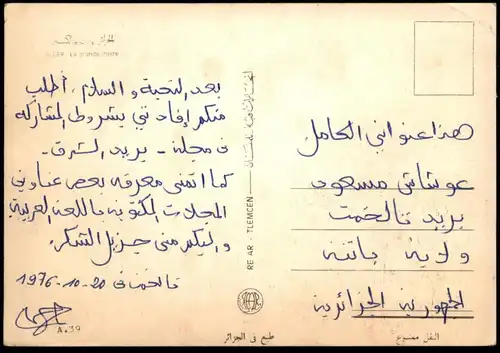 بعد التحية و السلام، أطلب
منكم إفادتي بشروط المشاركة
في مجلة - بريد الشرق -
كما اتمنى معرفة بعض عناوين
المجلات المكتوبة باللغة العربية
و اليكم مني جزيل الشكر.
في 20-10-1976
A.39
RE AR - TLEMCEN
هذا عنواني الكامل
عوشاش مسعود
بريد
ولاية باتنة
الجمهورية الجزائرية
طبع في الجزائر
النقل ممنوع